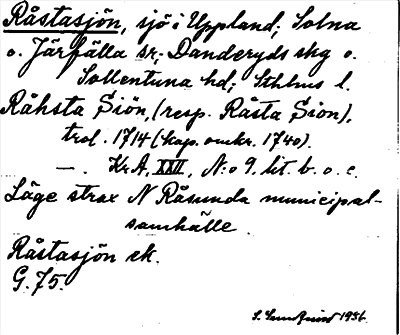 Råstasjön, sjö i Uppland; Solna
o. Järfälla sr; Danderyds skg o.
Sollentuna hd; Sthlms l.
Råhsta Siön, (resp. Råsta Sion),
trol. 1714 (kop. omkr. 1740).
—. KrA, XXII, N:o 9. lit. b. o. c.
Läge strax N Råsunda municipal-
samhälle.
Råstasjön ek.
G. 75.
1936